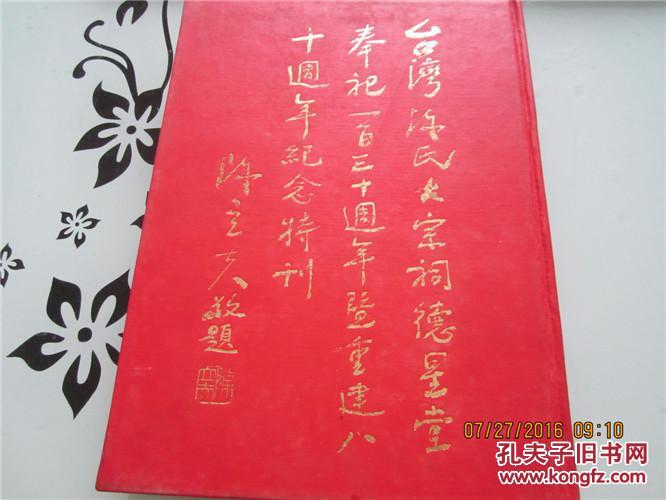 台灣陳氏大宗祠德星堂
奉祀一百三十週年暨重建八
十週年紀念特刊
陳立夫敬題
07/27/2016 09:10
孔夫子旧书网
www.kongfz.com